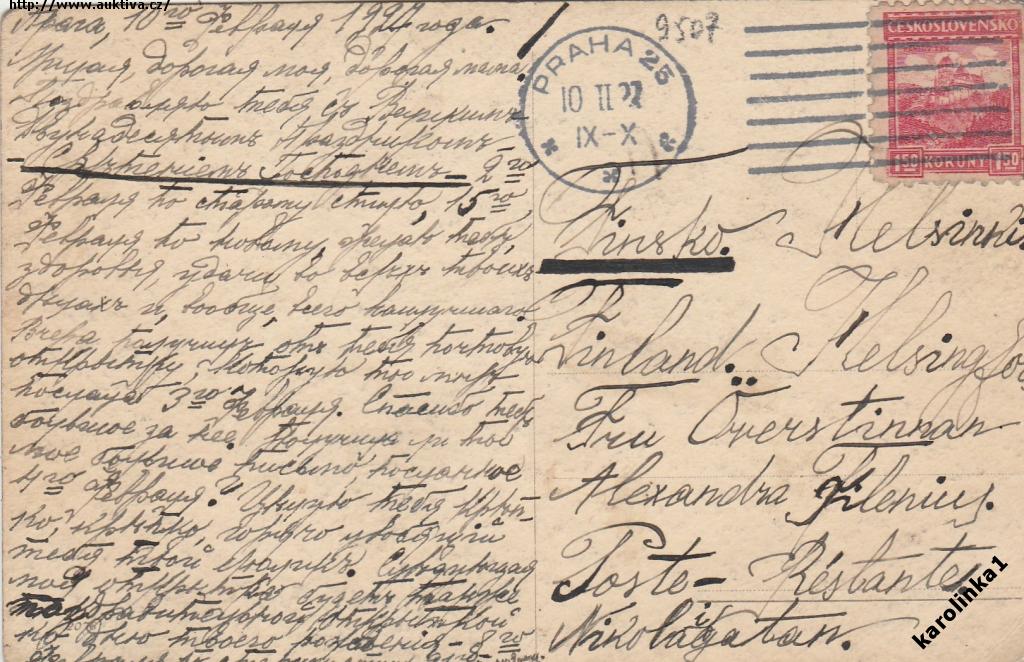 http://www.auktiva.cz/
Прага, 10го Февраля 1927 года.
Милая, дорогая моя, дорогая мама!
Поздравляю тебя съ Великимъ
Двунадесятымъ Праздникомъ
— Срѣтенiемъ Господнемъ — 2го
Февраля по старому стилю, 15го
Февраля по новому, желаю тебѣ
здоровья, удачи во всѣхъ твоихъ
дѣлахъ и, вообще, всего наилучшаго.
Вчера получилъ отъ тебя почтовую
открытку, которую ты мнѣ
послала 3го Февраля. Спасибо тебѣ
большое за нее. Получила ли ты
мое большое письмо, посланное
4го Февраля? Цѣлую тебя крѣп-
ко, крѣпко, горячо любящiй
тебя твой
моя открытка будетъ также
поздравительной открыткой
ко дню твоего рожденiя — 8го
9507
PRAHA 25
10 II 27
IX-X
ČESKOSLOVENSKO
1·50 KORUNY 1·50
Finsko. Helsinki
Finland. Helsingfo
Fru Överstinnan
Alexandra Filenius.
Poste-Réstante
Nikolaigatan.
karolinka1